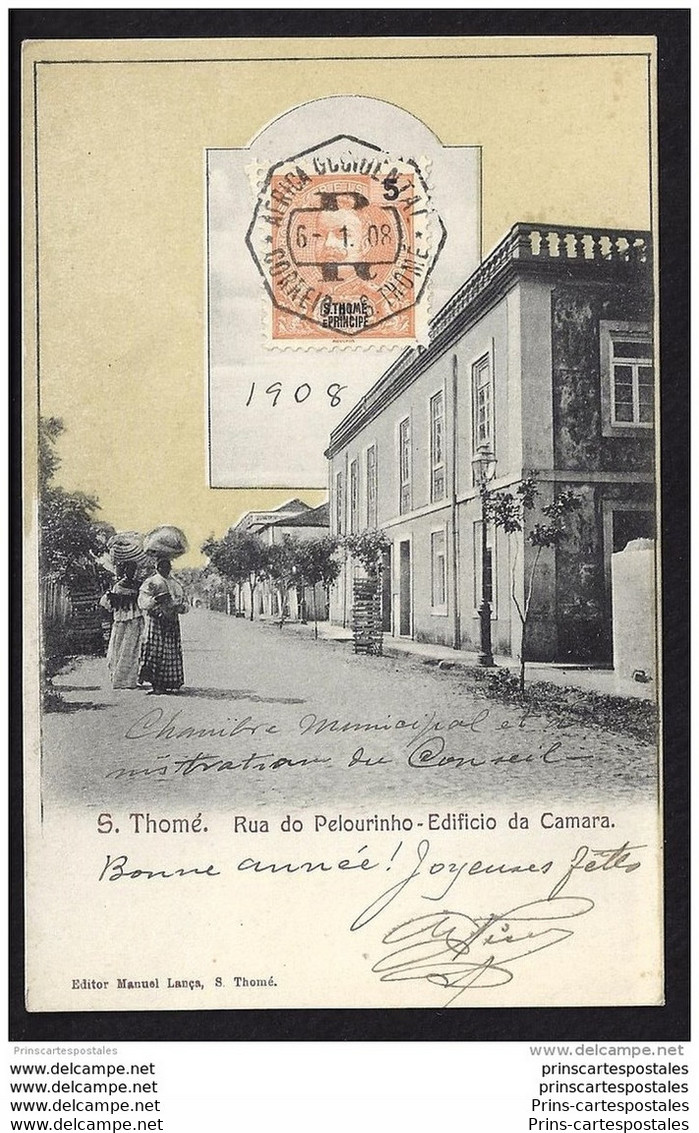 AFRICA OCCIDENTAL
5
REIS
6- 1. 08
CORREIO S. THOMÉ
S.THOMÉ
E PRINCIPE
1908
Chambre Municipal et a
nistration du Conseil
S. Thomé. Rua do Pelourinho-Edificio da Camara.
Bonne année! Joyeuses fêtes
Editor Manuel Lança, S. Thomé.
Prinscartespostales delcampe.net
www.delcampe.net prinscartespostales
www.delcampe.net prinscartespostales
www.delcampe.net Prins-cartespostales
www.delcampe.net Prins-cartespostales